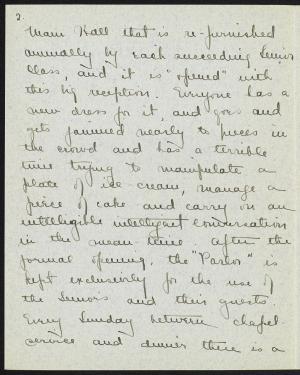 2.
Main Hall that is re-furnished
annually by each succeeding Senior
Class, and it is "opened" with
this big reception. Everyone has a
new dress for it, and goes and
gets jammed nearly to pieces in
the crowd and has a terrible
time trying to manipulate a
plate of ice-cream, manage a
piece of cake and carry on an
intelligible intelligent conversation
in the mean-time. After the
formal opening, the "Parlor" is
kept exclusively for the use of
the Seniors and their guests.
Every Sunday between chapel-
service and dinner there is a